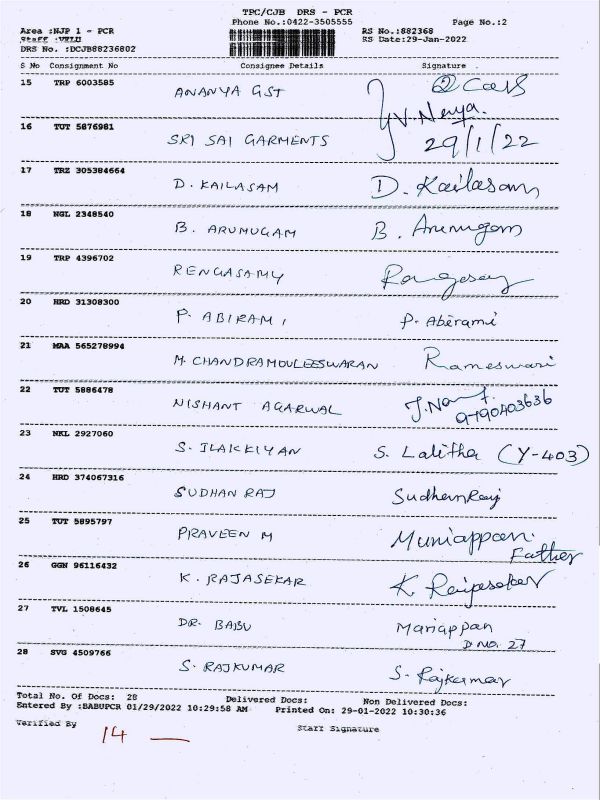 TPC/CJB DRS - PCR
Phone No.:0422-3505555 Page No.:2
Area :NJP 1 - PCR RS No.:882368
Staff :VELU RS Date:29-Jan-2022
DRS No. :DCJB88236802
S No Consignment No Consignee Details Signature
15 TRP 6003585 ANANYA GST
16 TUT 5876981 SRI SAI GARMENTS 29/1/22
17 TRZ 305384664 D. KAILASAM D. Kailasam
18 NGL 2348540 B. ARUMUGAM B. Arumugam
19 TRP 4396702 RENGASAMY
20 HRD 31308300 P. ABIRAMI P. Abirami
21 MAA 565278994 M. CHANDRAMOULEESWARAN Rameswari
22 TUT 5886478 NISHANT AGARWAL
9790403636
23 NKL 2927060 S. ILAKKIYAN S. Lalitha (Y-403)
24 HRD 374067316 SUDHAN RAJ Sudhan Raj
25 TUT 5895797 PRAVEEN M Muniappan
Father
26 GGN 96116432 K. RAJASEKAR K. Rajasekar
27 TVL 1508645 DR. BABU Mariappan
D NO. 27
28 SVG 4509766 S. RAJKUMAR S. Rajkumar
Total No. Of Docs: 28 Delivered Docs: Non Delivered Docs:
Entered By :BABUPCR 01/29/2022 10:29:58 AM Printed On: 29-01-2022 10:30:36
Verified By 14 Staff Signature